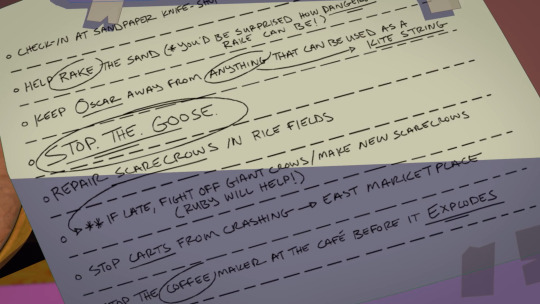 CHECK-IN AT SANDPAPER KNIFE-
HELP RAKE THE SAND (*YOU'D BE SURPRISED HOW
RAKE CAN BE!)
KEEP OSCAR AWAY FROM ANYTHING THAT CAN BE USED AS A
KITE STRING
STOP. THE. GOOSE.
REPAIR SCARECROWS IN RICE FIELDS
** IF LATE, FIGHT OFF GIANT CROWS/MAKE NEW SCARECROWS
(RUBY WILL HELP!)
STOP CARTS FROM CRASHING → EAST MARKETPLACE
THE COFFEE MAKER AT THE CAFÉ BEFORE IT EXPLODES